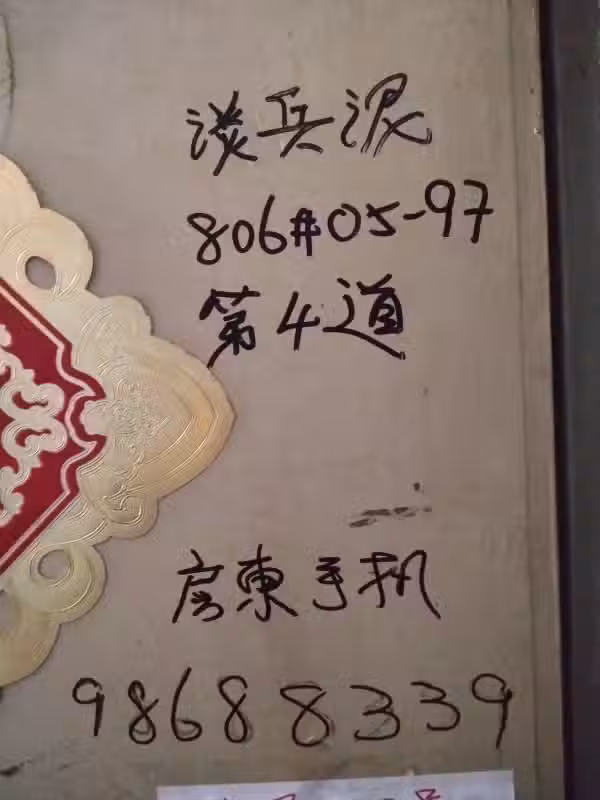 淡兵泥
806#05-97
第4道
房東手机
98688339